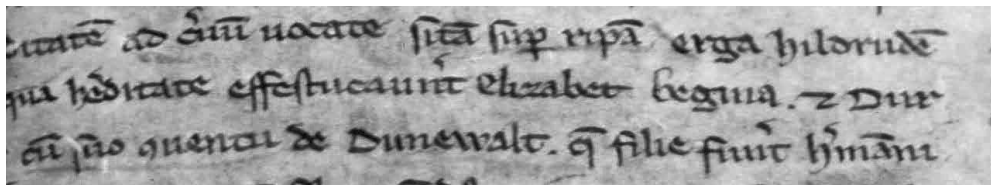 citatē ad c̓uū uocate sitā sup̱ ripā erga hildrudē
qua hēditate effestucaūnt elizabet begina. ⁊ Dur
cū suo ꝯuentu de Dunewalt. q̄ filie fūnt h̓māni